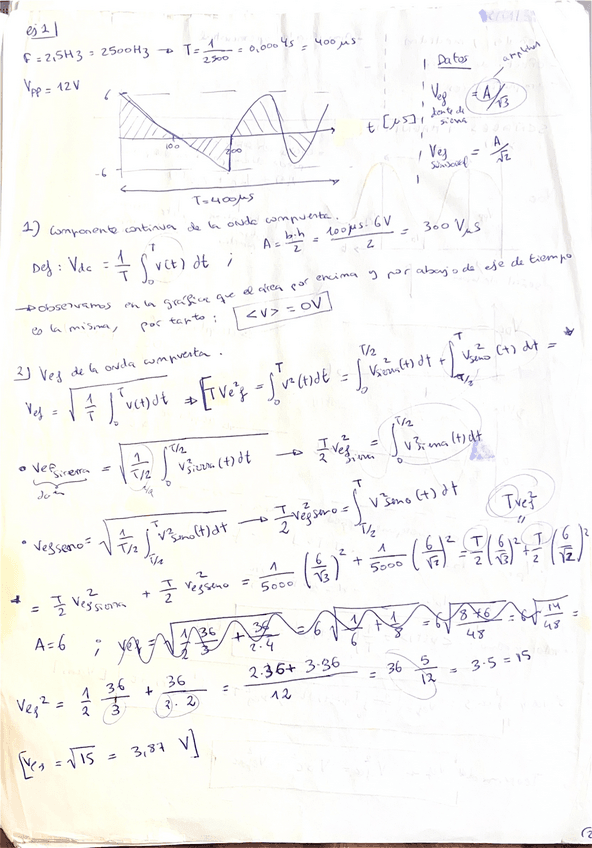 ej 1
F = 2,5Hz = 2500Hz → T = 1/2500 = 0,0004s = 400 μs
Vpp = 12V
6
-6
100
200
t [μs]
T = 400μs
Datos
amplitud
Vef diente de sierra = A/√3
Vef sinusoidal = A/√2
1) Componente continua de la onda compuesta.
Def: Vdc = 1/T ∫₀ᵀ v(t) dt ; A = b·h/2 = 100μs·6V/2 = 300 Vμs
→ Observamos en la gráfica que el área por encima y por abajo de eje de tiempo
es la misma, por tanto: <v> = 0V
2) Vef de la onda compuesta.
Vef = √(1/T ∫₀ᵀ v(t) dt) ⇒ [T Vef² = ∫₀ᵀ v²(t) dt = ∫₀^(T/2) v²sierra(t) dt + ∫_(T/2)^T v²seno(t) dt = *
• Vef sierra = √(1/(T/2) ∫₀^(T/2) v²sierra(t) dt) → T/2 Vef² sierra = ∫₀^(T/2) v²sierra(t) dt
• Vef seno = √(1/(T/2) ∫_(T/2)^T v²seno(t) dt) → T/2 Vef² seno = ∫_(T/2)^T v²seno(t) dt
T Vef²
"
* = T/2 Vef² sierra + T/2 Vef² seno = 1/5000 (6/√3)² + 1/5000 (6/√2)² = T/2 (6/√3)² + T/2 (6/√2)²
A=6 ; Vef = √(1/2 36/3 + 36/2·4) = 6√(1/6 + 1/8) = 6√(8+6/48) = 6√(14/48) =
Vef² = 1/2 36/3 + 36/2·2 = 2·36 + 3·36/12 = 36 5/12 = 3·5 = 15
[Vef = √15 = 3,87 V]